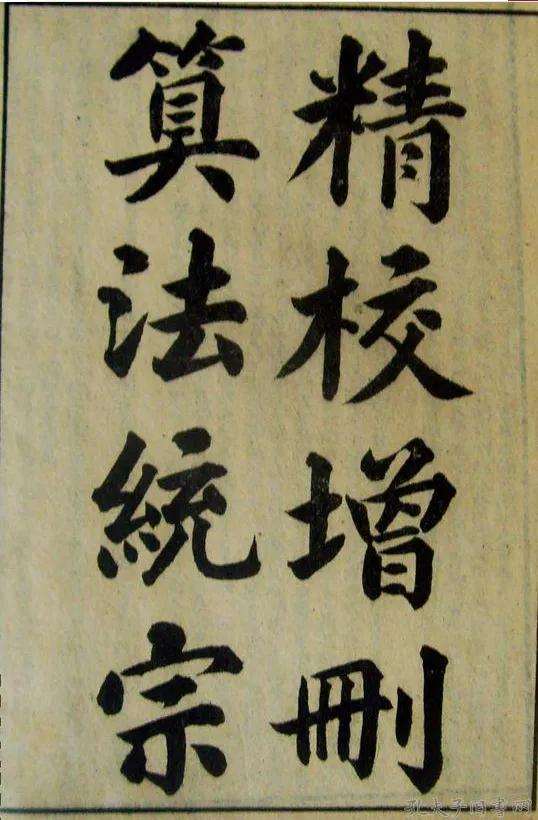 精校增刪
算法統宗
孔夫子旧书网